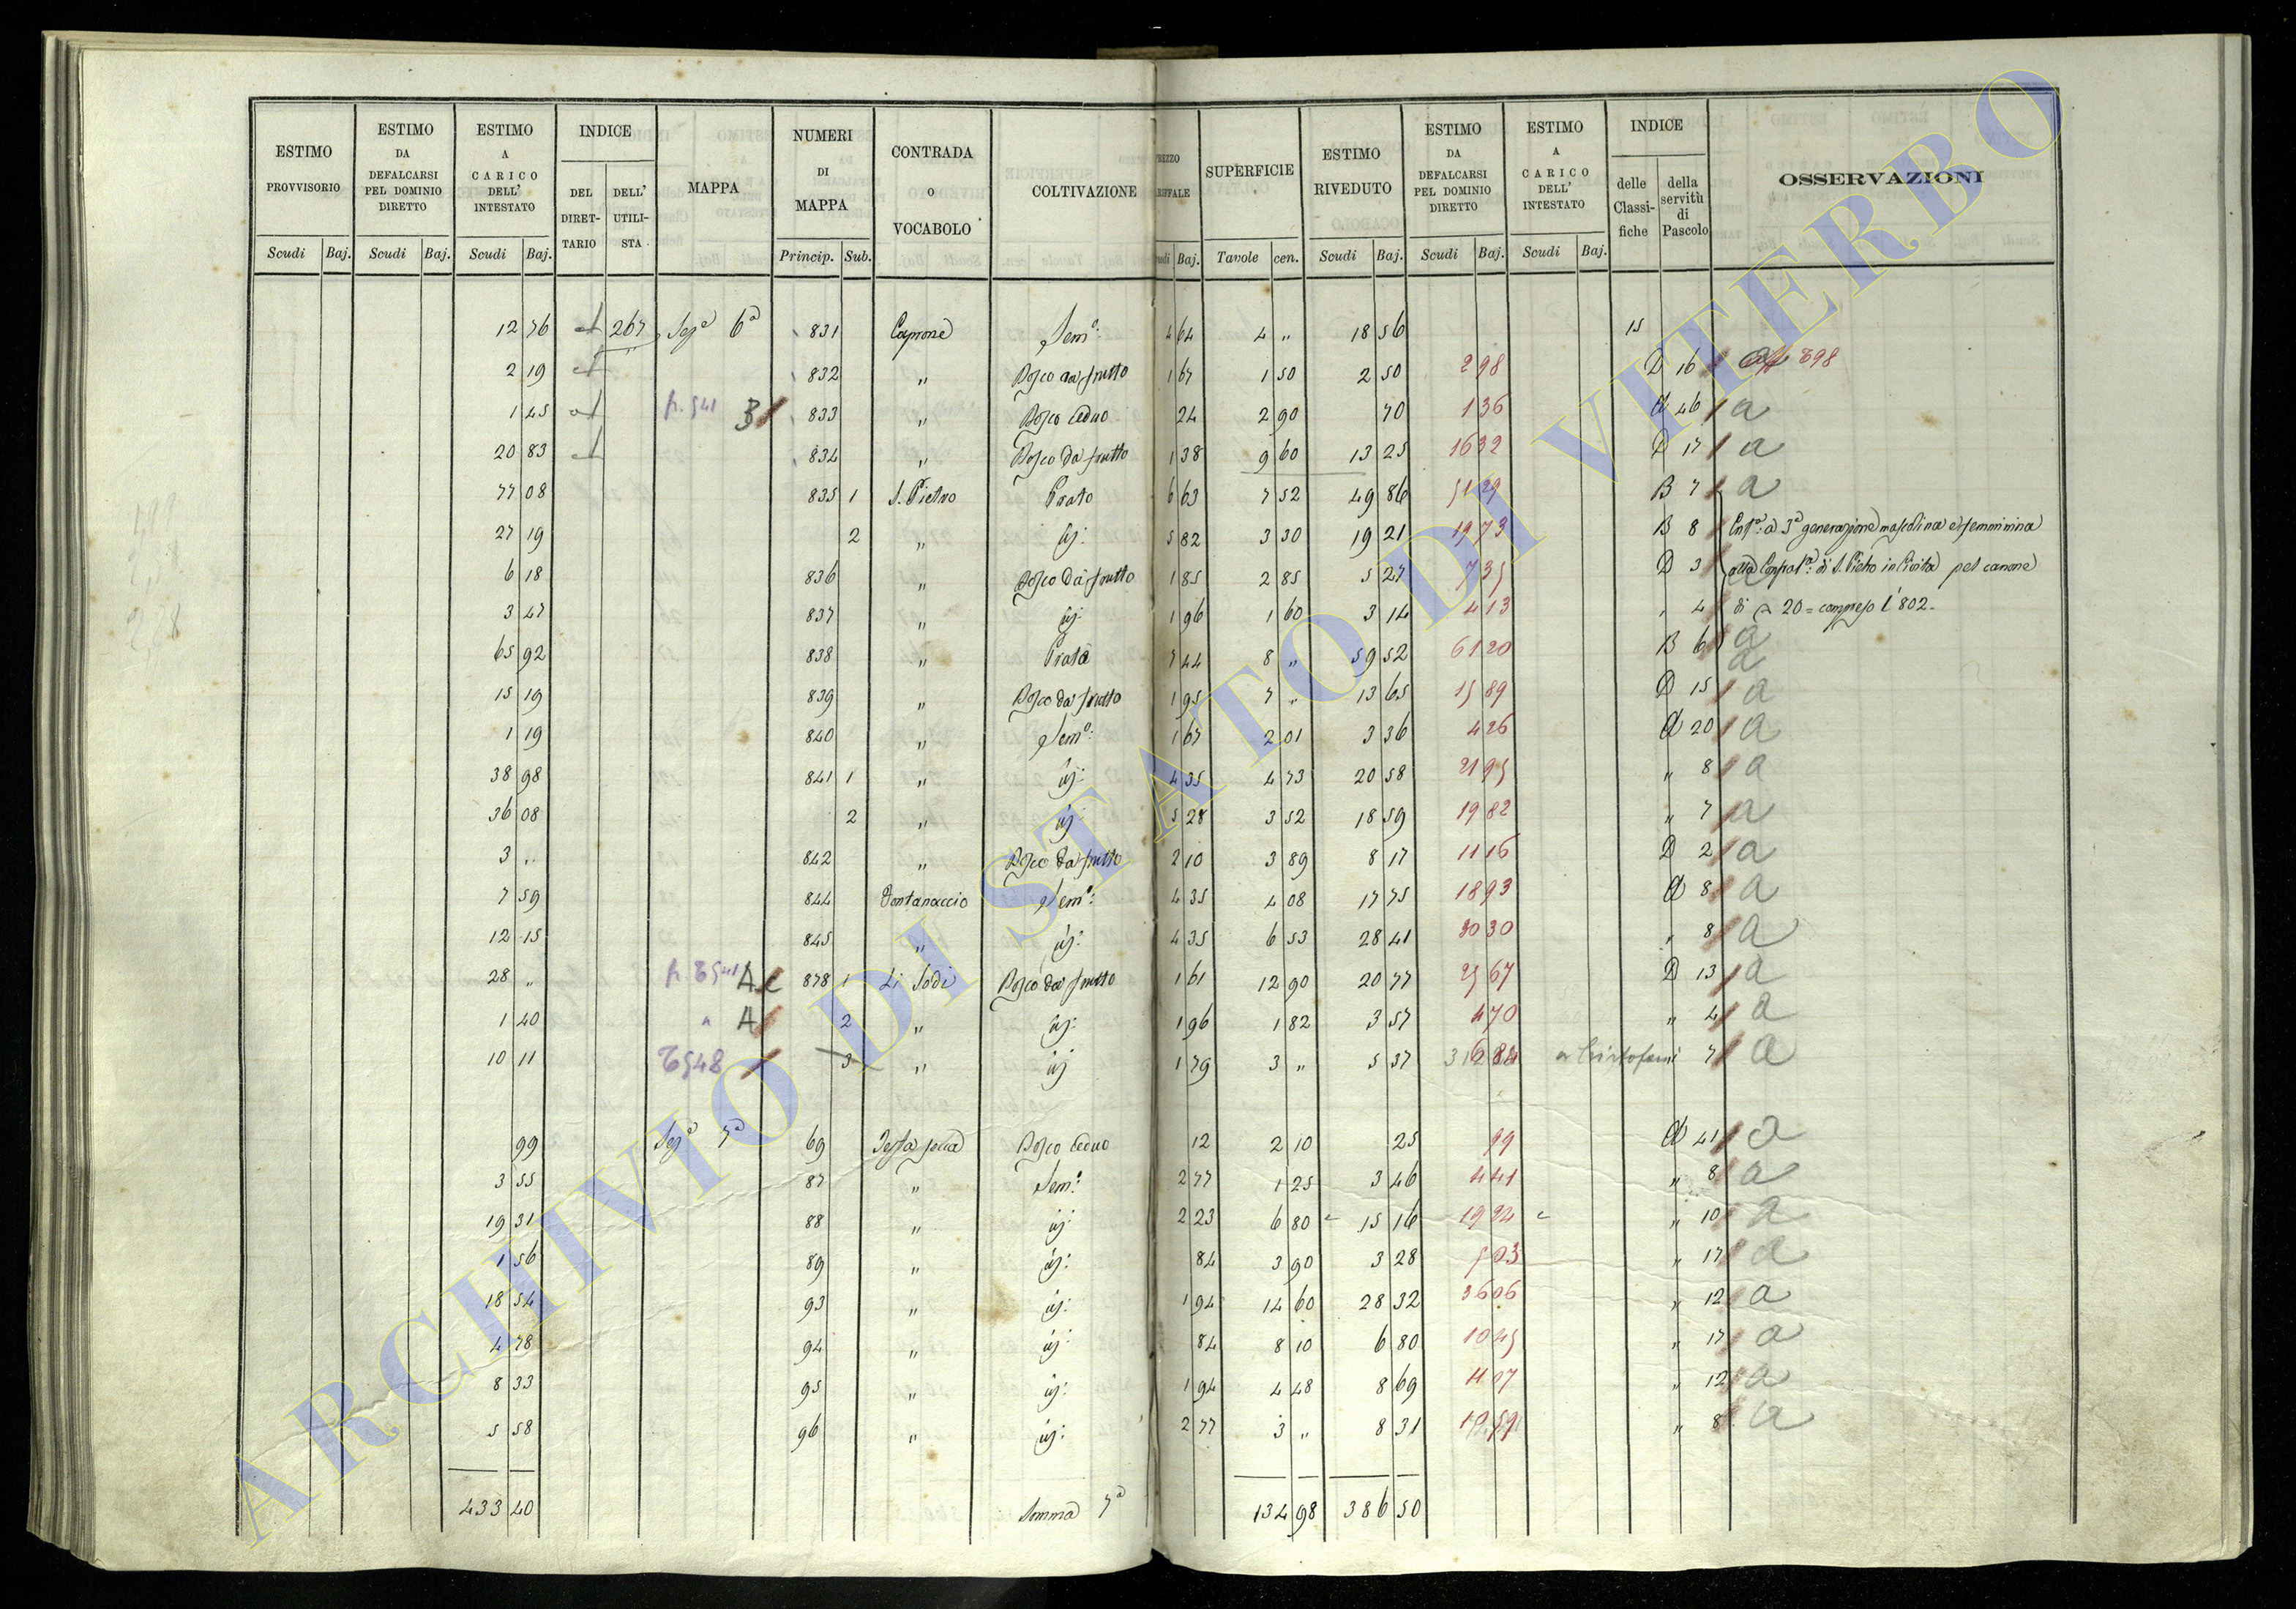 ESTIMO PROVVISORIO Scudi Baj.
ESTIMO DA DEFALCARSI PEL DOMINIO DIRETTO Scudi Baj.
ESTIMO A CARICO DELL' INTESTATO Scudi Baj.
INDICE DEL DIRET-TARIO DELL' UTILI-STA
MAPPA
NUMERI DI MAPPA Princip. Sub.
CONTRADA O VOCABOLO
COLTIVAZIONE
REZZO RIFFALE udi Baj.
SUPERFICIE Tavole cen.
ESTIMO RIVEDUTO Scudi Baj.
ESTIMO DA DEFALCARSI PEL DOMINIO DIRETTO Scudi Baj.
ESTIMO A CARICO DELL' INTESTATO Scudi Baj.
INDICE delle Classi-fiche della servitù di Pascolo
OSSERVAZIONI
12 76 267 Seze 6a 831 Caprone Sem: 4 64 4 " 18 56 15
2 19 832 " Bosco da frutto 1 67 1 50 2 50 2 98 D 16
1 45 B 833 " Bosco Ceduo 24 2 90 70 1 36 46 a
20 83 834 " Bosco da frutto 1 38 9 60 13 25 16 32 D 17 a
77 08 835 1 S. Pietro Prato 6 63 7 52 49 86 51 29 B 7 a
27 19 2 " id: 5 82 3 30 19 21 19 73 B 8 Enfa: a 3a generazione mascolina e femminina
6 18 836 " Bosco da frutto 1 85 2 85 5 27 7 35 D 3 alla Compa: di S. Pietro in Civita pel canone
3 47 837 " id: 1 96 1 60 3 14 4 13 " 4 di 20 = compreso l'802.
65 92 838 " Prato 7 44 8 " 59 52 61 20 B 6 a
15 19 839 " Bosco da frutto 1 95 7 " 13 65 15 89 D 15 a
1 19 840 " Sem: 1 67 2 01 3 36 4 26 20 a
38 98 841 1 " id: 4 35 4 73 20 58 21 95 " 8 a
36 08 2 " id: 5 28 3 52 18 59 19 82 " 7 a
3 " 842 " Bosco da frutto 2 10 3 89 8 17 11 16 D 2 a
7 59 844 Fontanaccio Sem: 4 35 4 08 17 75 18 93 8 a
12 15 845 " id: 4 35 6 53 28 41 30 30 " 8 a
28 " A 878 1 Li Sodi Bosco da frutto 1 61 12 90 20 77 25 67 D 13 a
1 40 " A 2 " id: 1 96 1 82 3 57 4 70 " 4 a
10 11 548 3 " id 1 79 3 " 5 37 a Cristofani 7 a
99 Seze 7a 69 Bosco Ceduo 12 2 10 25 99 41 a
3 55 87 " Sem: 2 77 1 25 3 46 4 41 " 8 a
19 31 88 " id: 2 23 6 80 15 16 " 10 a
1 56 89 " id: 84 3 90 3 28 5 03 " 17 a
18 54 93 " id: 1 94 14 60 28 32 36 06 " 12 a
4 78 94 " id: 84 8 10 6 80 10 45 " 17 a
8 33 95 " id: 1 94 4 48 8 69 11 07 " 12 a
5 58 96 " id: 2 77 3 " 8 31 " 8 a
433 40 Somma 7a 134 98 386 50
ARCHIVIO DI STATO DI VITERBO